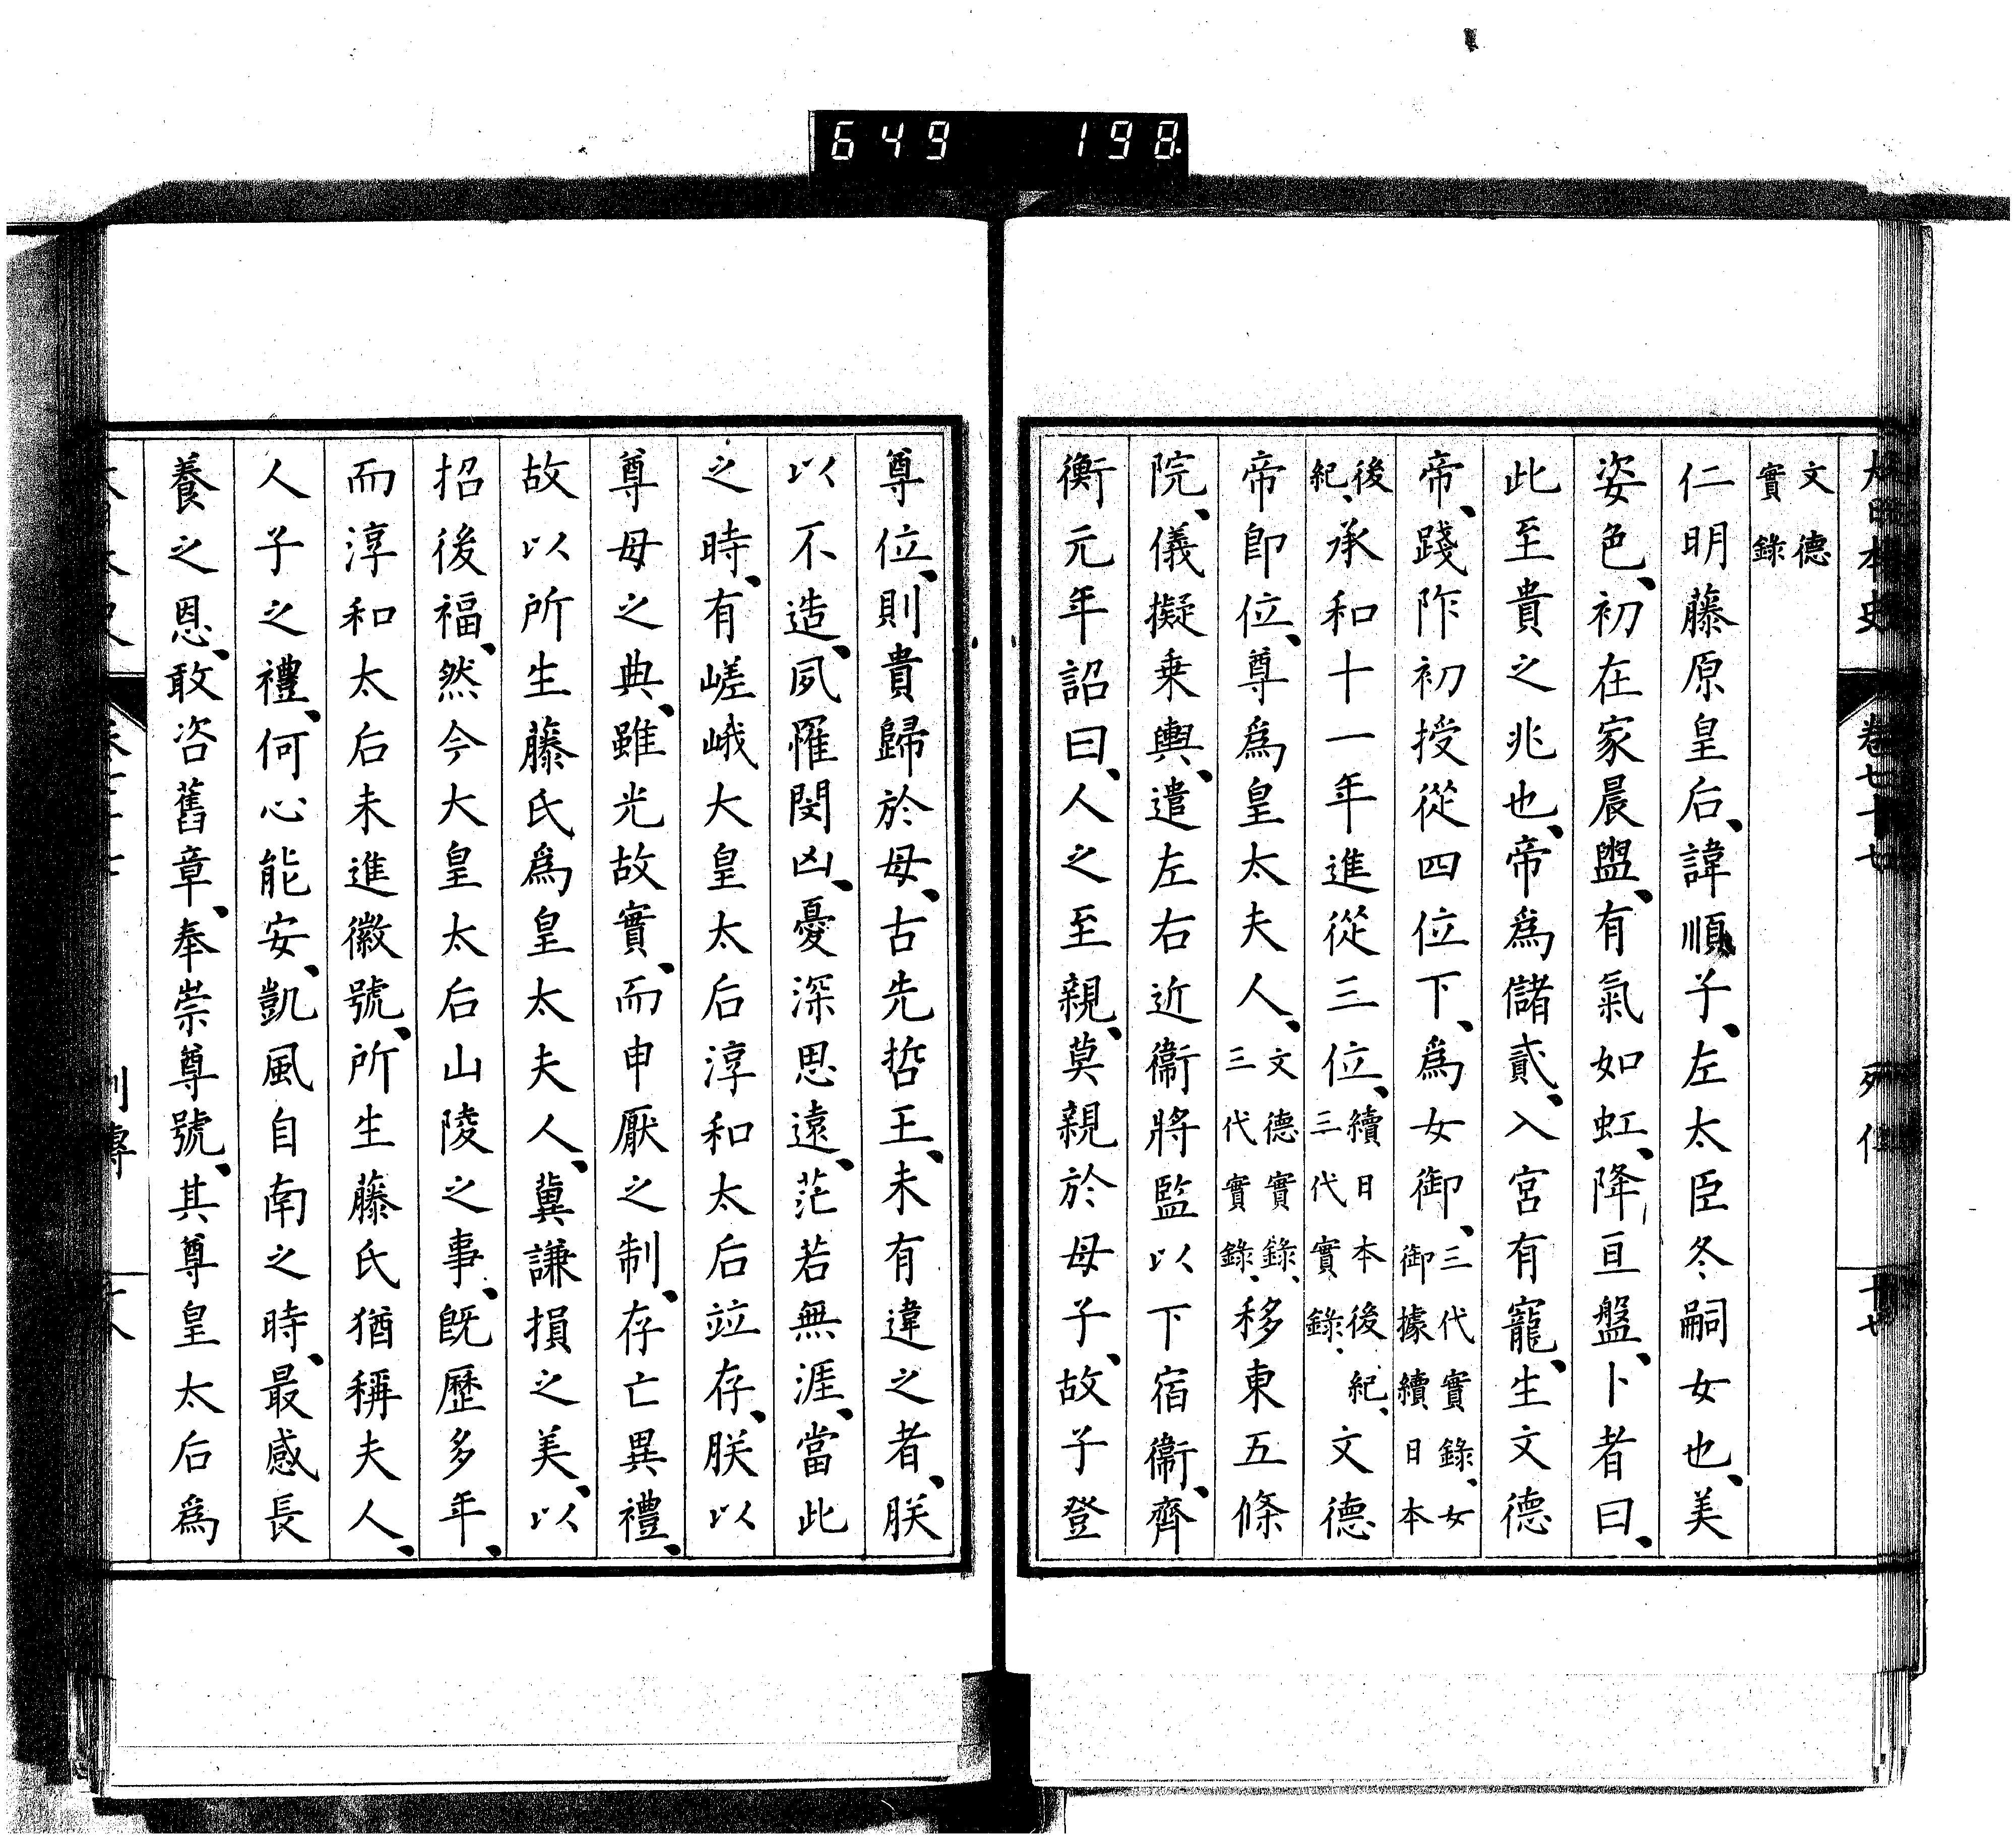 649 198
大日本史 卷七十七 列傳 十七
文德
實錄
仁明藤原皇后、諱順子、左太臣冬嗣女也、美
姿色、初在家晨盥、有氣如虹、降亘盤、卜者曰、
此至貴之兆也、帝爲儲貳、入宮有寵、生文德
帝、踐阼初授從四位下、爲女御、三代實錄、女御據續日本
後紀、承和十一年進從三位、續日本後紀、三代實錄、文德
帝卽位、尊爲皇太夫人、文德實錄、三代實錄、移東五條
院、儀擬乗輿、遣左右近衞將監以下宿衞、齊
衡元年詔曰、人之至親、莫親於母子、故子登
尊位、則貴歸於母、古先哲王、未有違之者、朕
以不造、夙罹閔凶、憂深思遠、茫若無涯、當此
之時、有嵯峨大皇太后淳和太后竝存、朕以
尊母之典、雖光故實、而申厭之制、存亡異禮、
故以所生藤氏爲皇太夫人、冀謙損之美、以
招後福、然今大皇太后山陵之事、旣歷多年、
而淳和太后未進徽號、所生藤氏猶稱夫人、
人子之禮、何心能安、凱風自南之時、最感長
養之恩、敢咨舊章、奉崇尊號、其尊皇太后爲